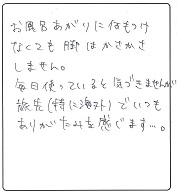 お風呂あがりに何もつけ
なくても脚はかさかさ
しません。
毎日使っていると気づきませんが
旅先(特に海外)でいつも
ありがたみを感じます…。